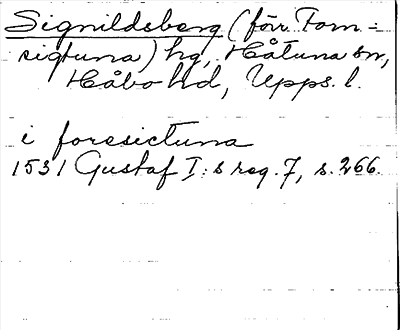 Signildsberg (förr Forn=
sigtuna) hg, Håtuna sn,
Håbo hd, Upps. l.
i foresictuna
1531 Gustaf I:s reg. 7, s. 266.